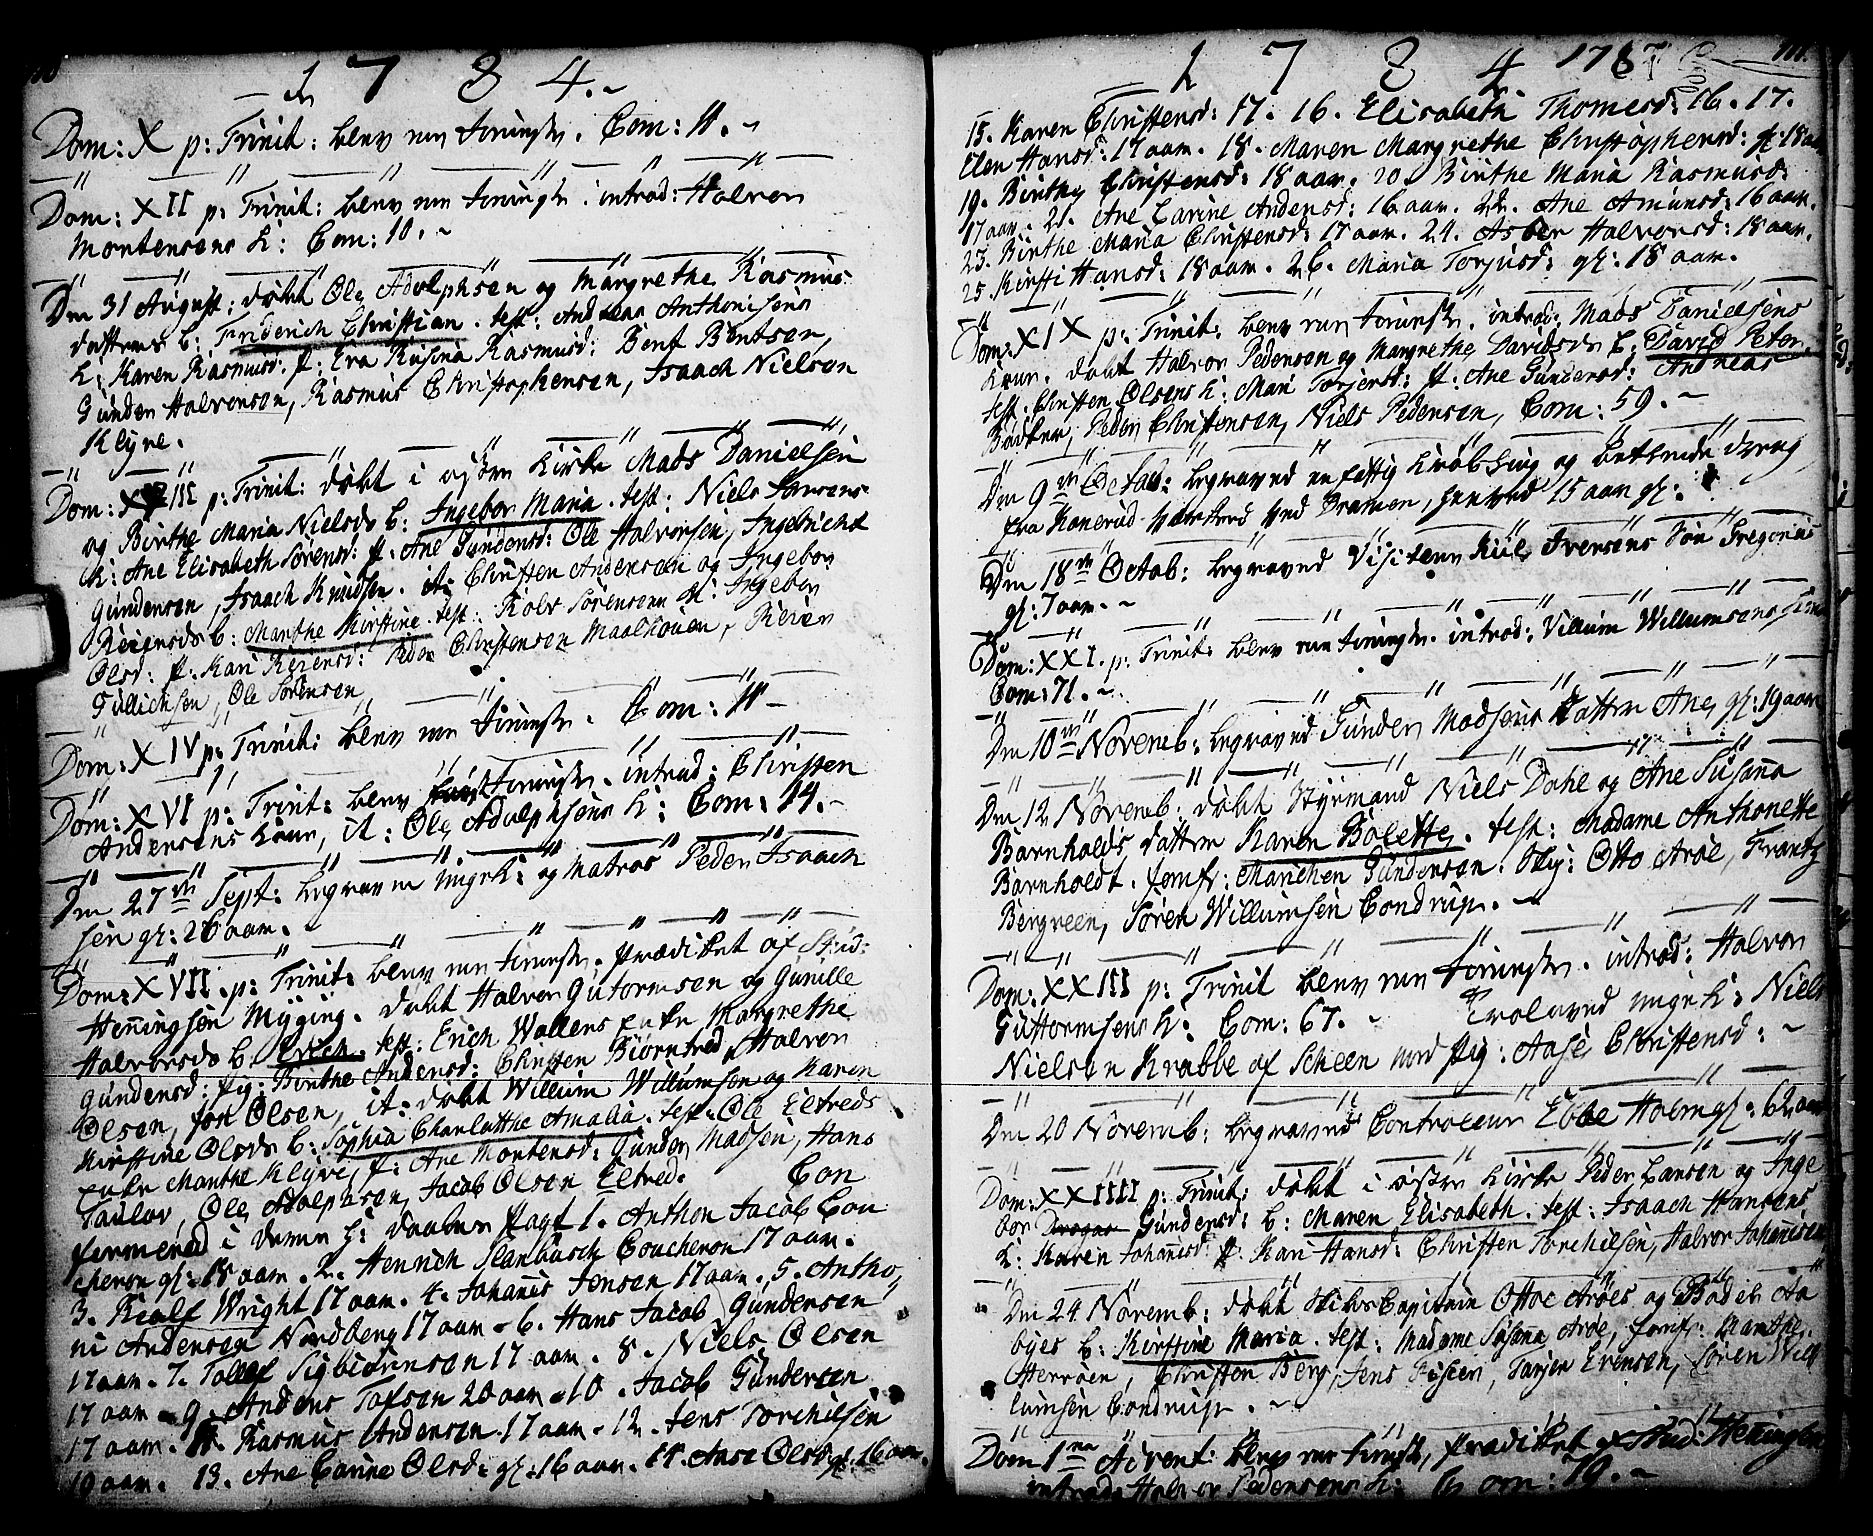 1784.
Dom: X p: Trinit: blev reen Tienniste. Com: 11.
Dom: XII p: Trinit: blev reen Tienniste. introd: Halvor
Mortensens K: Com: 10.
Den 31 August: døbt Ole Adolphsen og Margrethe Rasmus
datters b: Friderich Christian. test: Andreas Anthonisens
K: Karen Rasmusd: P: Eva Rusina Rasmusd: Bent Bentsen,
Gunder Halvorsen, Rasmus Christophersen, Isaach Nielsen
Klyve.
Dom: XIII p: Trinit: døbt i østre Kirke Mads Danielsen
og Birthe Maria Nielsds b: Ingebor Maria. test: Niels Sørens
K: Ane Elisabeth Sørensd: P: Ane Gundersd: Ole Halvorsen, Ingebricht
Gundersen, Isaach Knudsen. it: Christen Andersen og Ingebor
Reiersds b: Marthe Kirstine. test: Rolv Sørensens K: Ingebor
Olsd: P: Kari Reiersd: Peder Christensen Maalkouen, Reier
Gullichsen, Ole Sørensen
Dom: XIV p: Trinit: blev reen Tienniste. Com: 11
Dom: XVI p: Trinit: blev Tienniste. introd: Christen
Andersens Kone, it: Ole Adolphsens K: Com: 14.
Den 27de Sept: begraven ungk: og Matros Peder Isaach
sen gl: 26 aar.
Dom: XVII. p: Trinit: blev reen Tienniste. Prædiket af Stud:
Henningsen Mÿging. døbt Halvor Gutormsen og Gunille
Halvorsds b. Erich. test: Erich Wallens Enke Margrethe
Gundersd: Pig: Birthe Andersd: Christen Biørntred, Halvor
Olsen, Jon Olsen, it: døbt Willum Willumsen og Karen
Kirstine Olsds b: Sophia Charlotthe Amalia. test: Ole Eltreds
Enke Marthe Klyve, P: Ane Mortensd: Gunder Madsen, Hans
Taulov, Ole Adolphsen, Jacob Olsen Eltred. Con
firmered i deres H: daabes Pagt 1. Anthon Jacob Cou
cheron gl: 18 aar. 2. Henrich Coucheron 17 aar.
3. Realf Wright 17 aar. 4. Johannes Jensen 17 aar. 5. Antho
ni Andersen Nordberg 17 aar. 6. Hans Jacob Gundersen
17 aar. 7. Tollef Sigbiørnsen 17 aar. 8. Niels Olsen
17 aar. 9. Anders Tofsen 20 aar. 10. Jacob Gundersen
17 aar. 11. Rasmus Andersen 17 aar. 12. Jens Torchilsen
19 aar. 13. Ane Carine Olsd: gl: 16 aar. 14. Aase Olsd: gl: 16 aar.
1784 111.
15. Karen Christensd: 17. 16. Elisabeth Thomesd: 16. 17.
Elen Hansd: 17 aar. 18. Maren Margrethe Christophersd: gl: 18 aar
19. Birthe Christensd: 18 aar. 20. Birthe Maria Rasmusd:
17 aar. 21. Ane Carine Andersd: 16 aar. 22. Ane Amunsd: 16 aar.
23. Birthe Maria Christensd: 17 aar. 24. Asber Halvorsd: 18 aar.
25. Kirsti Hansd: 18 aar. 26. Maria Torjusd: gl: 18 aar.
Dom: XIX p: Trinit: blev reen Tienniste. introd: Mads Danielsens
Kone. døbt Halvor Pedersen og Margrethe Davidsds b. David Peter,
test: Christen Olsens K: Mari Torjersd: P: Ane Gundersd: Andreas
Bødker, Peder Christensen, Niels Pedersen, Com: 59.
Den 9de Octob: begraved en fattig Krøbling og betlende dreng
fra Konerud ved Dramen, henved 15 aar gl:
Den 18de Octob: begraved Visiteur Kiil Iversens Søn Gregorius
gl: 7 aar.
Dom: XXI. p: Trinit: blev reen Tienniste. introd: Villum Willumsens
Com: 71.
Den 10de Novemb: begraved Gunder Madsens datter Ane, gl: 19 aar
Den 12 Novemb: døbt Styrmand Niels Dahl og Ane Susanna
Barnholds datter Karen Bolette. test: Madame Anthonette
Barnholdt. Jomfr: Marichen Gundersen. Sty: Otto Aroe, Frantz
Bergreen, Søren Willumsen Condrup.
Dom: XXIII p: Trinit blev reen Tienniste. introd: Halvor
Guttormsens K: Com: 67. Trolaved ungk: Niels
Nielsen Krabbe af Scheen med Pig: Aase Christensd:
Den 20 Novemb: begraved Controleur Ebbe Holm gl: 62 aar
Dom: XXIIII p: Trinit: døbt i østre Kirke Peder Larsen og Inge
bor Gundersd: b: Maren Elisabeth. test: Isaach Hansens
K: Karen Johannsd: P: Kari Hansd: Christen Torchilsen, Halvor Johannesen
Den 24 Novemb: døbt Skibs Capitain Ottoe Aroes og Bodel Aa
byes b: Kirstine Maria. test: Madame Susanna Aroe, Jomfr: Marthe
Herroen, Christen Berg, Jens Risøen, Tarjer Evensen, Søren Wil
lumsen Condrup.
Dom 1ma Advent: blev reen Tienist, prædiket af Stud: Henningsen
introd: Halvor Pedersens K: Com: 79.